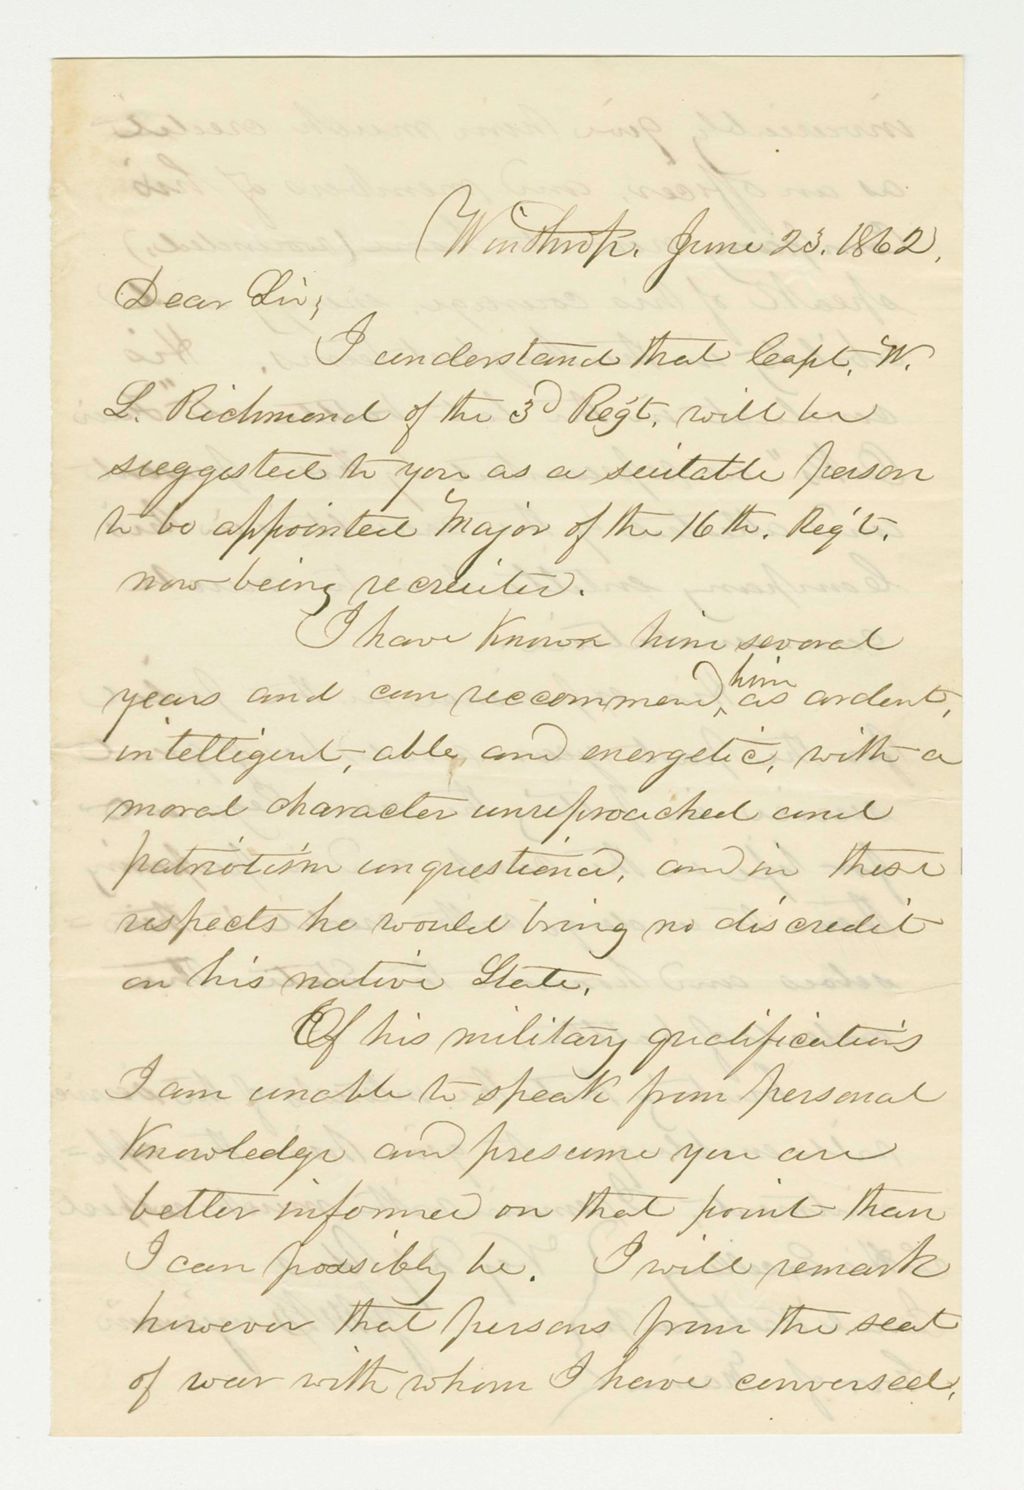 Winthrop, June 23, 1862,
Dear Sir;
I understand that Capt. W.
L. Richmond of the 3d Reg't. will be
suggested to you as a suitable person
to be appointed Major of the 16th. Reg't.
now being recruited.
I have known him several
years and can reccommend, him as ardent,
intelligent, able, and energetic, with a
moral character unreproached and
patriotism unquestion'd, and in these
respects he would bring no discredit
on his native State.
Of his military qualifications
I am unable to speak from personal
knowledge and presume you are
better informed on that point than
I can possibly be. I will remark
however that persons from the seat
of war with whom I have conversed,